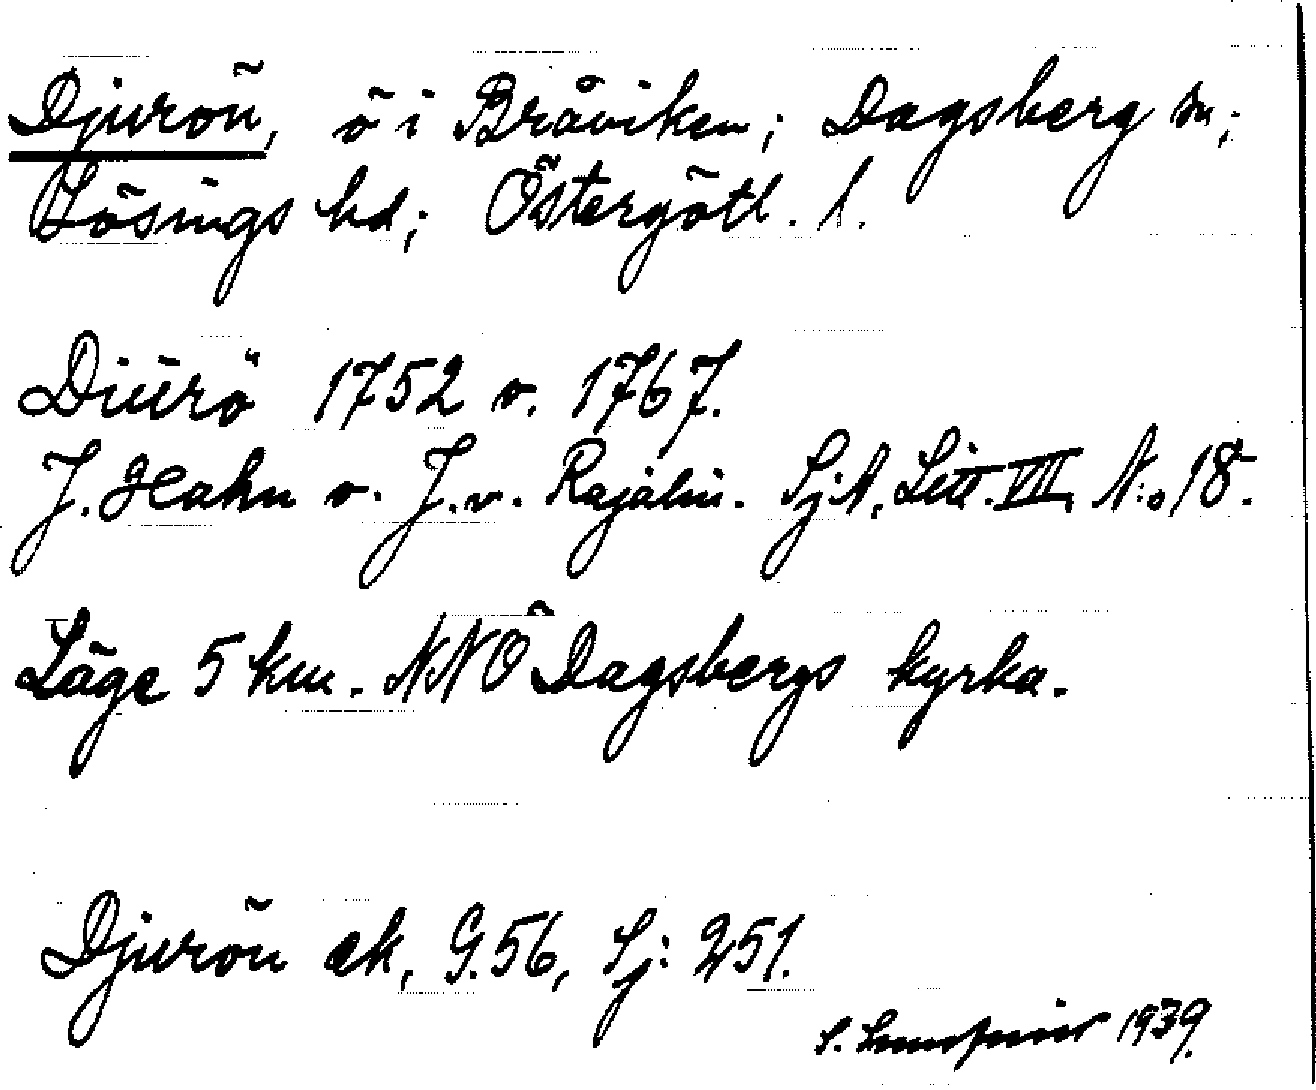 Djurön, ö i Bråviken; Dagsberg sn;
Lösings hd; Östergötl. l.
Diurö 1752 o. 1767.
J. Hahn o. J. v. Rajalin. SjA, Litt. VIII, N:o 18.
Läge 5 km. NNÖ Dagsbergs kyrka.
Djurön ek, G. 56, Sj: 251.
S. 1939.